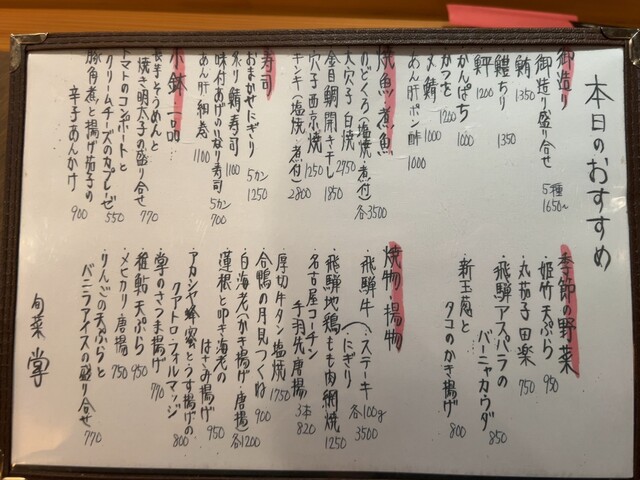 本日のおすすめ
御造り
御造り盛り合せ 5種 1650~
鮪 1350
鱧ちり 1350
鮃 1200
かんぱち 1000
かつを 1200
〆鯖 1000
あん肝ポン酢 1000
焼魚・煮魚
のどぐろ(塩焼・煮付) 各3500
大穴子白焼 2950
金目鯛開き干し 1850
穴子西京焼 1250
キンキ(塩焼・煮付) 2800
寿司
おまかせにぎり 5カン 1250
炙り鯖寿司 1100
味付あげのいなり寿司 5カン 700
あん肝細巻 1100
小鉢・一品
長芋そうめんと
焼き明太子の盛り合せ 770
トマトのコンポートと
クリームチーズのカプレーゼ 550
豚角煮と揚げ茄子の
辛子あんかけ 900
季節の野菜
・姫竹天ぷら 950
・丸茄子田楽 750
・飛騨アスパラの
バーニャカウダ 850
・新玉葱と
タコのかき揚げ 800
焼物・揚物
・飛騨牛・ステーキ
(・にぎり 各100g 3500
・飛騨地鶏もも肉網焼 1250
・名古屋コーチン
手羽先唐揚 3本 820
・厚切牛タン塩焼 1750
・合鴨の月見つくね 900
・白海老(かき揚げ・唐揚) 各1200
・蓮根と叩き海老の
はさみ揚げ 950
・アカシヤ蜂蜜とうす揚げの
クアトロ・フォルマッジ 800
・掌のさつま揚げ 770
・稚鮎天ぷら 950
・メヒカリ・唐揚 750
・りんごの天ぷらと
バニラアイスの盛り合せ 770
旬菜 掌